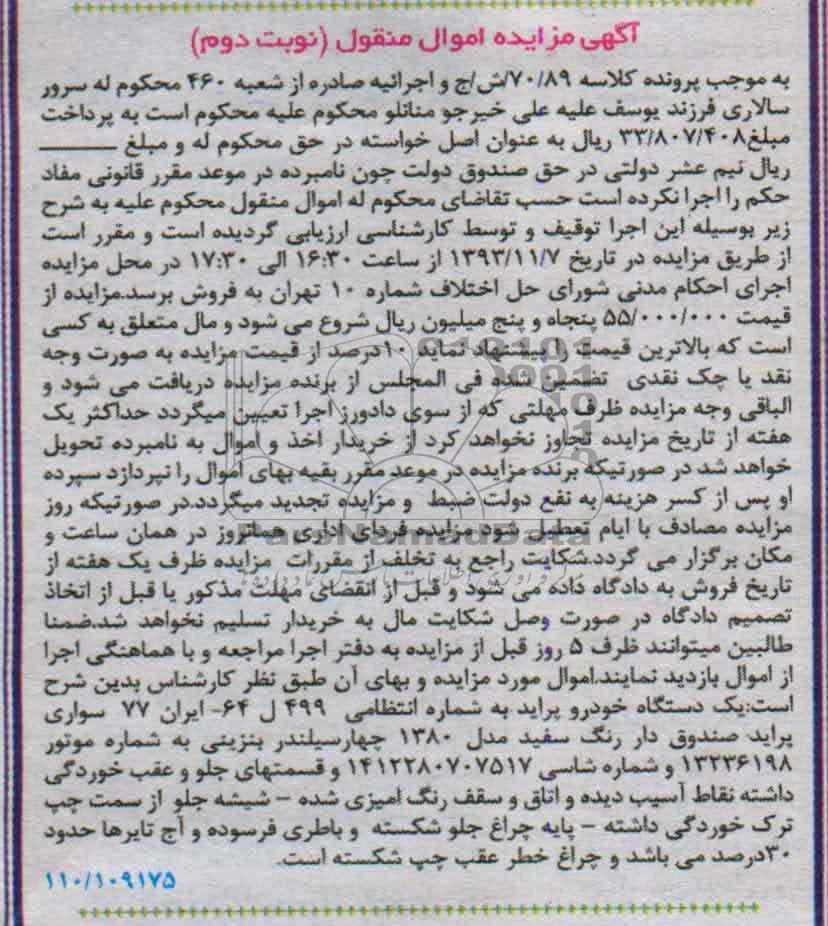 آگهی مزایده اموال منقول (نوبت دوم)
به موجب پرونده کلاسه ۷۰/۸۹/ش/ج و اجرائیه صادره از شعبه ۴۶۰ محکوم له سرور
سالاری فرزند یوسف علیه علی خیرجو منانلو محکوم علیه محکوم است به پرداخت
مبلغ۳۳/۸۰۷/۴۰۸ ریال به عنوان اصل خواسته در حق محکوم له و مبلغ ـــــــــ
ریال نیم عشر دولتی در حق صندوق دولت چون نامبرده در موعد مقرر قانونی مفاد
حکم را اجرا نکرده است حسب تقاضای محکوم له اموال منقول محکوم علیه به شرح
زیر بوسیله این اجرا توقیف و توسط کارشناسی ارزیابی گردیده است و مقرر است
از طریق مزایده در تاریخ ۱۳۹۳/۱۱/۷ از ساعت ۱۶:۳۰ الی ۱۷:۳۰ در محل مزایده
اجرای احکام مدنی شورای حل اختلاف شماره ۱۰ تهران به فروش برسد.مزایده از
قیمت ۵۵/۰۰۰/۰۰۰ پنجاه و پنج میلیون ریال شروع می شود و مال متعلق به کسی
است که بالاترین قیمت را پیشنهاد نماید ۱۰درصد از قیمت مزایده به صورت وجه
نقد یا چک نقدی تضمین شده فی المجلس از برنده مزایده دریافت می شود و
الباقی وجه مزایده ظرف مهلتی که از سوی دادورز اجرا تعیین میگردد حداکثر یک
هفته از تاریخ مزایده تجاوز نخواهد کرد از خریدار اخذ و اموال به نامبرده تحویل
خواهد شد در صورتیکه برنده مزایده در موعد مقرر بقیه بهای اموال را نپردازد سپرده
او پس از کسر هزینه به نفع دولت ضبط و مزایده تجدید میگردد.در صورتیکه روز
مزایده مصادف با ایام تعطیل شود مزایده فردای اداری همانروز در همان ساعت و
مکان برگزار می گردد.شکایت راجع به تخلف از مقررات مزایده ظرف یک هفته از
تاریخ فروش به دادگاه داده می شود و قبل از انقضای مهلت مذکور یا قبل از اتخاذ
تصمیم دادگاه در صورت وصل شکایت مال به خریدار تسلیم نخواهد شد.ضمنا
طالبین میتوانند ظرف ۵ روز قبل از مزایده به دفتر اجرا مراجعه و با هماهنگی اجرا
از اموال بازدید نمایند.اموال مورد مزایده و بهای آن طبق نظر کارشناس بدین شرح
است:یک دستگاه خودرو پراید به شماره انتظامی ۴۹۹ ل ۶۴- ایران ۷۷ سواری
پراید صندوق دار رنگ سفید مدل ۱۳۸۰ چهارسیلندر بنزینی به شماره موتور
۱۳۲۳۶۱۹۸ و شماره شاسی ۱۴۱۲۲۸۰۷۰۷۵۱۷ و قسمتهای جلو و عقب خوردگی
داشته نقاط آسیب دیده و اتاق و سقف رنگ امیزی شده - شیشه جلو از سمت چپ
ترک خوردگی داشته - پایه چراغ جلو شکسته و باطری فرسوده و آج تایرها حدود
۳۰درصد می باشد و چراغ خطر عقب چپ شکسته است.
۱۱۰/۱۰۹۱۷۵
ParsNamadData